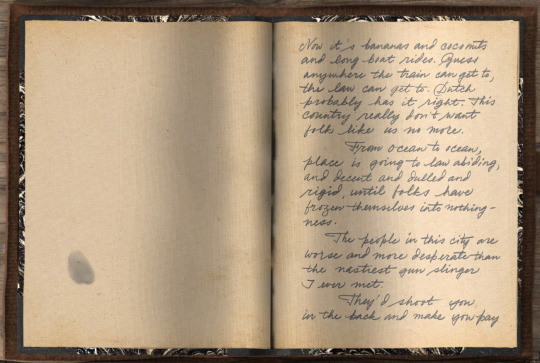 Now it's bananas and coconuts
and long boat rides. Guess
anywhere the train can get to,
the law can get to. Dutch
probably has it right. This
country really don't want
folk like us no more.
From ocean to ocean,
place is going to law abiding,
and decent and dulled and
rigid, until folks have
frozen themselves into nothing-
ness.
The people in this city are
worse and more desperate than
the nastiest gun slinger
I ever met.
They'd shoot you
in the back and make you pay